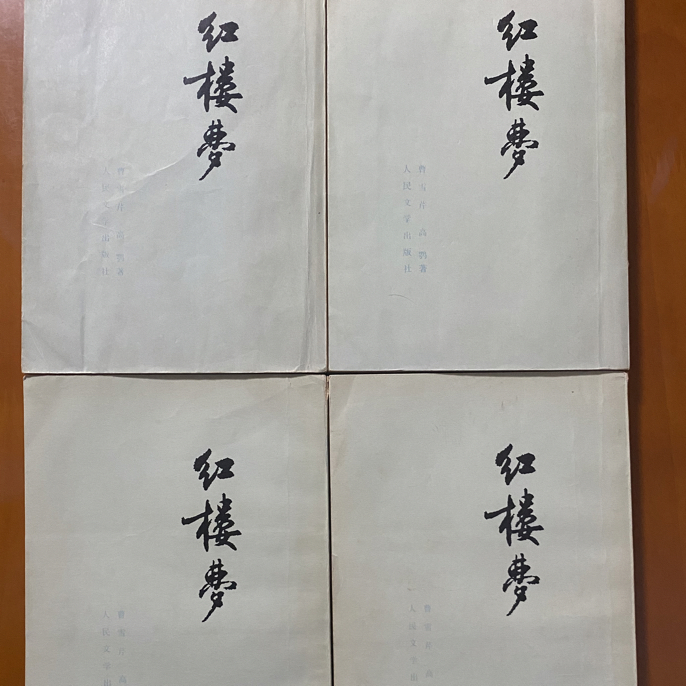 红楼梦
曹雪芹 高鹗著
人民文学出版社
红楼梦
曹雪芹 高鹗著
人民文学出版社
红楼梦
曹雪芹 高
人民文学出
红楼梦
曹雪芹 高
人民文学出